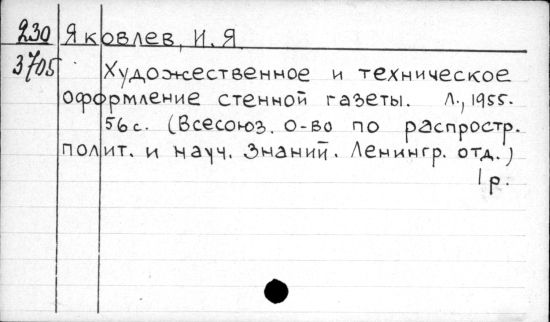 230 Яковлев, И. Я.
3705 Художественное и техническое
оформление стенной газеты. Л., 1955.
56 с. (Всесоюз. о-во по распростр.
полит. и науч. знаний. Ленингр. отд.)
1 р.